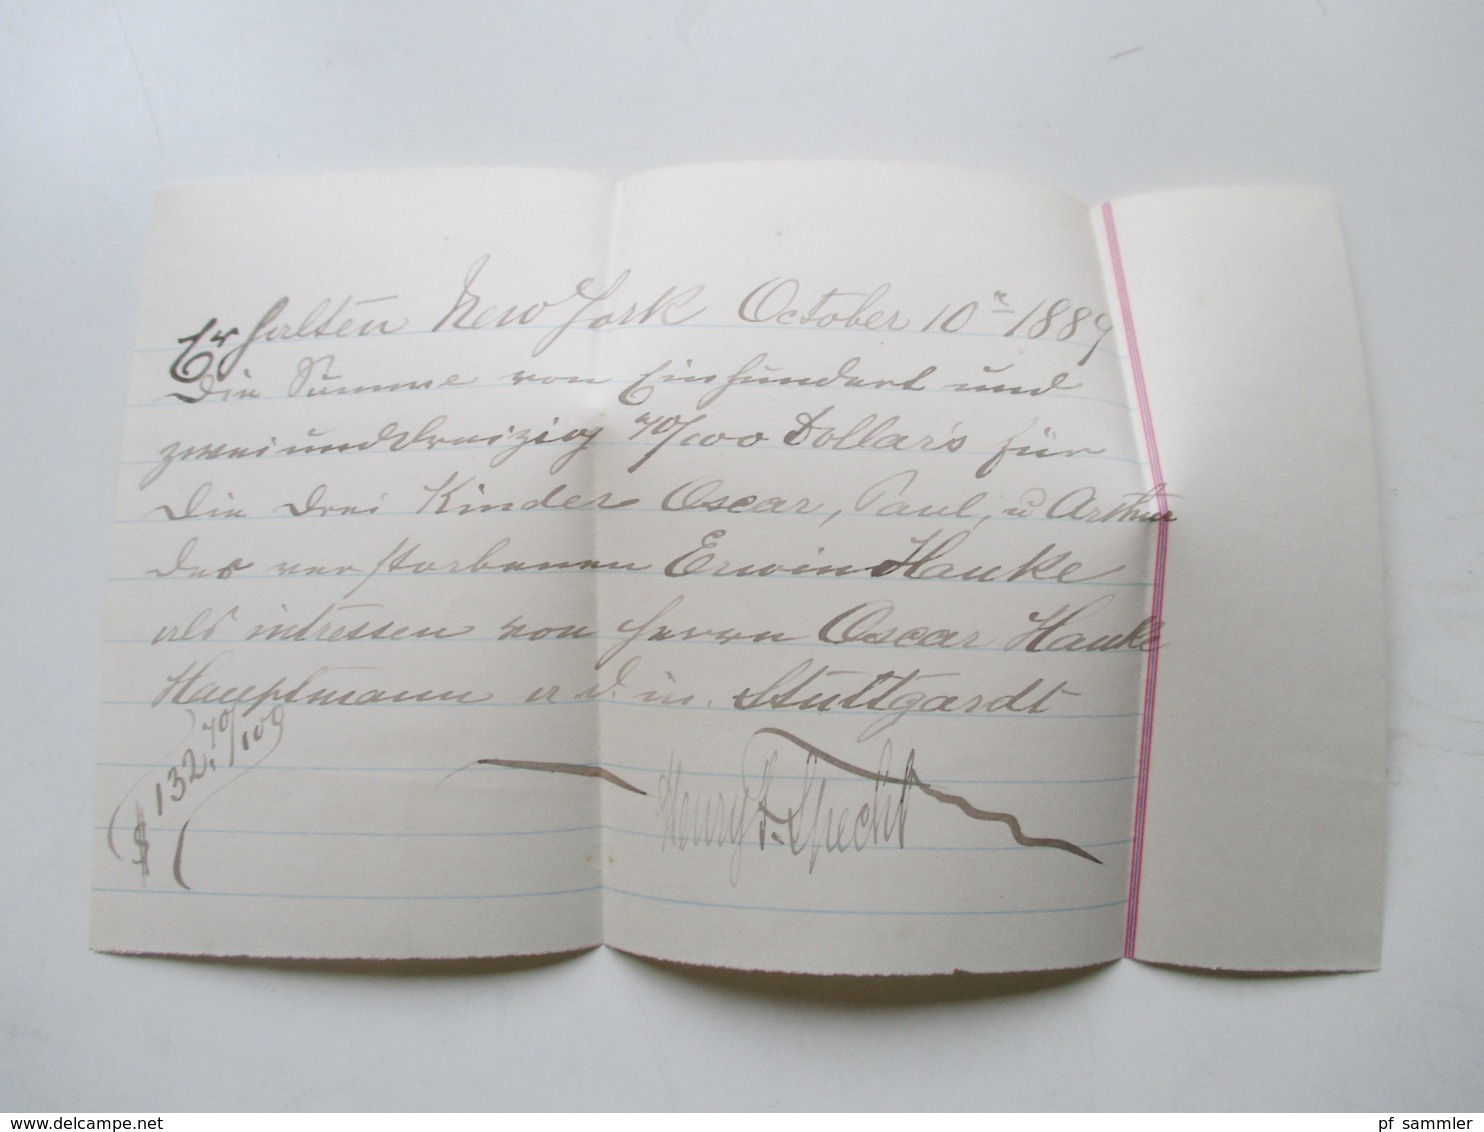 Erhalten New York October 10te 1889
die Summe von Einhundert und
zweiunddreizig 70/100 Dollars für
die drei Kinder Oscar, Paul, u Arthur
des verstorbenen Erwin Hauke
als intressen von Herrn Oscar Hauke
Hauptmann a d. in Stuttgardt
$ 132, 70/100
Henry F. Specht
www.delcampe.net
pf_sammler